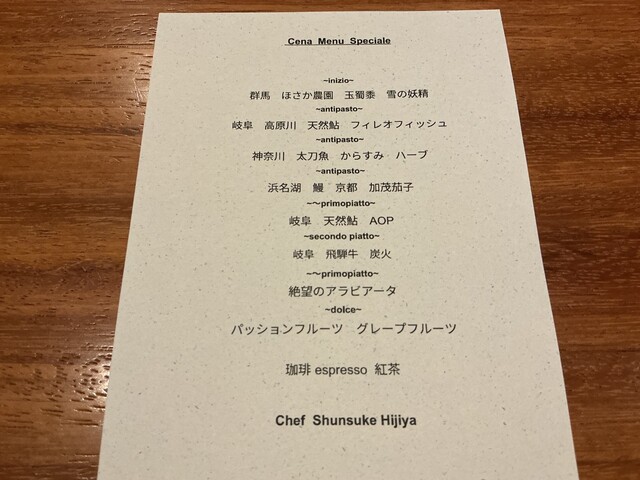 Cena Menu Speciale
~inizio~
群馬 ほさか農園 玉蜀黍 雪の妖精
~antipasto~
岐阜 高原川 天然鮎 フィレオフィッシュ
~antipasto~
神奈川 太刀魚 からすみ ハーブ
~antipasto~
浜名湖 鰻 京都 加茂茄子
~〜primopiatto~
岐阜 天然鮎 AOP
~secondo piatto~
岐阜 飛騨牛 炭火
~〜primopiatto~
絶望のアラビアータ
~dolce~
パッションフルーツ グレープフルーツ
珈琲 espresso 紅茶
Chef Shunsuke Hijiya